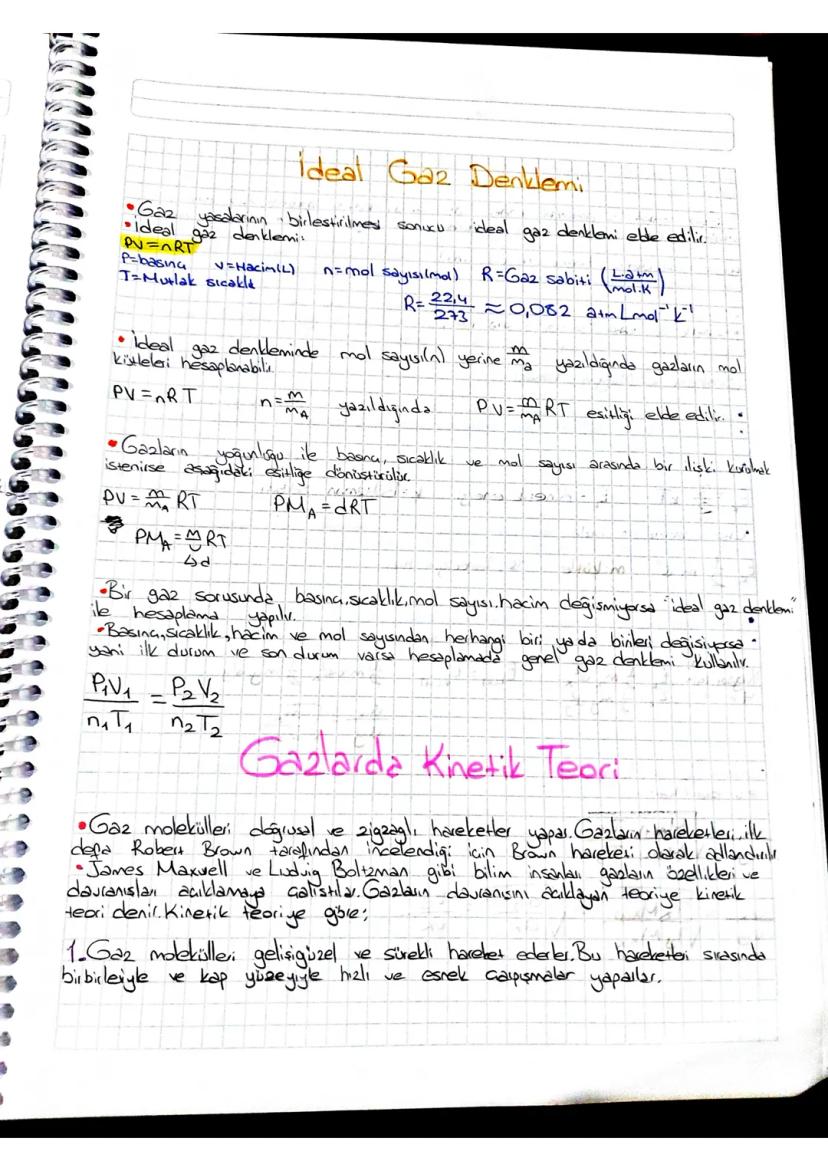 İdeal Gaz Denklemi
• Gaz yasalarının birleştirilmesi sonucu ideal gaz denklemi elde edilir.
• İdeal gaz denklemi:
PV=nRT
P=basınç V=Hacim(L) n=mol sayısı(mol) R=Gaz sabiti (L.atm/mol.K)
T=Mutlak sıcaklık
R= 22,4/273 ≈ 0,082 atm L mol⁻¹ K⁻¹
• İdeal gaz denkleminde mol sayısı(n) yerine m/ma yazıldığında gazların mol
kütleleri hesaplanabilir.
PV=nRT n=m/mA yazıldığında PV=m/mA RT eşitliği elde edilir.
• Gazların yoğunluğu ile basınç, sıcaklık ve mol sayısı arasında bir ilişki kurulmak
istenirse aşağıdaki eşitliğe dönüştürülür.
PV = m/ma RT PMA = dRT
PMA = m/v RT
↳d
• Bir gaz sorusunda, basınç,sıcaklık,mol sayısı,hacim değişmiyorsa "ideal gaz denklemi"
ile hesaplama yapılır.
• Basınç,sıcaklık,hacim ve mol sayısından herhangi biri ya da birileri değişiyorsa
yani ilk durum ve son durum varsa hesaplamada genel gaz denklemi kullanılır.
P₁V₁/n₁T₁ = P₂V₂/n₂T₂
Gazlarda Kinetik Teori
• Gaz molekülleri doğrusal ve zigzaglı hareketler yapar. Gazların hareketleri ilk
defa Robert Brown tarafından incelendiği için Brown hareketi olarak adlandırılır
• James Maxwell ve Ludwig Boltzman gibi bilim insanları gazların özellikleri ve
davranışları açıklamaya çalıştılar. Gazların davranışını açıklayan teoriye kinetik
teori denir. Kinetik teoriye göre;
1. Gaz molekülleri gelişigüzel ve sürekli hareket ederler. Bu hareketleri sırasında
birbirleriyle ve kap yüzeyiyle hızlı ve esnek çarpışmalar yaparlar.